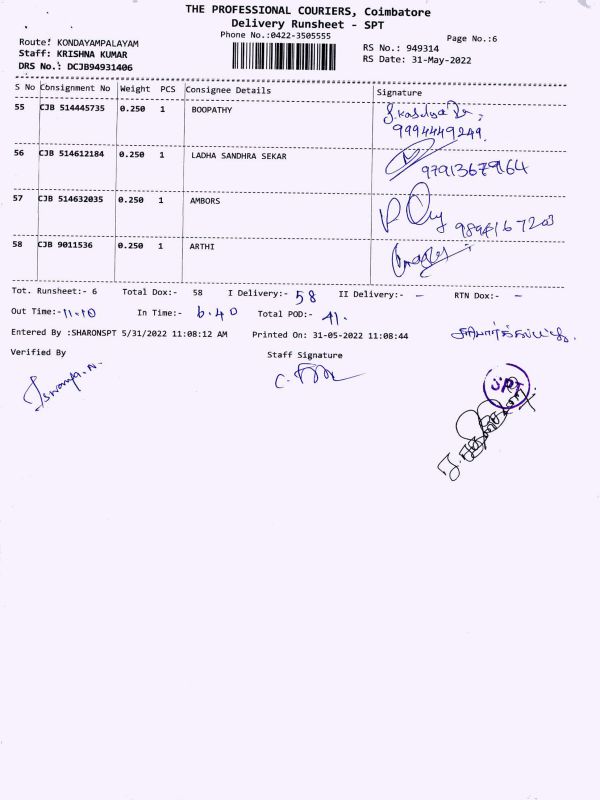 THE PROFESSIONAL COURIERS, Coimbatore
Delivery Runsheet - SPT
Phone No.:0422-3505555
Page No.:6
Route: KONDAYAMPALAYAM
RS No.: 949314
Staff: KRISHNA KUMAR
RS Date: 31-May-2022
DRS No.: DCJB94931406
S No Consignment No Weight PCS Consignee Details Signature
55 CJB 514445735 0.250 1 BOOPATHY
9994449249
56 CJB 514612184 0.250 1 LADHA SANDHRA SEKAR
57 CJB 514632035 0.250 1 AMBORS
58 CJB 9011536 0.250 1 ARTHI
Tot. Runsheet:- 6 Total Dox:- 58 I Delivery:- 58 II Delivery:- - RTN Dox:- -
Out Time:- 11.10 In Time:- 6.40 Total POD:- 41.
Entered By :SHARONSPT 5/31/2022 11:08:12 AM Printed On: 31-05-2022 11:08:44
Verified By Staff Signature
SPT